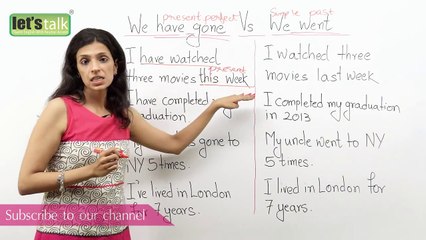 let's talk®
present perfect
simple past
We have gone Vs We went
I have watched
present
three movies this week
I have completed
gone to
NY 5 times.
I've lived in London
7 years.
I watched three
movies last week
I completed my graduation
in 2013
My uncle went to NY
5 times.
I lived in London for
7 years.
Subscribe to our channel